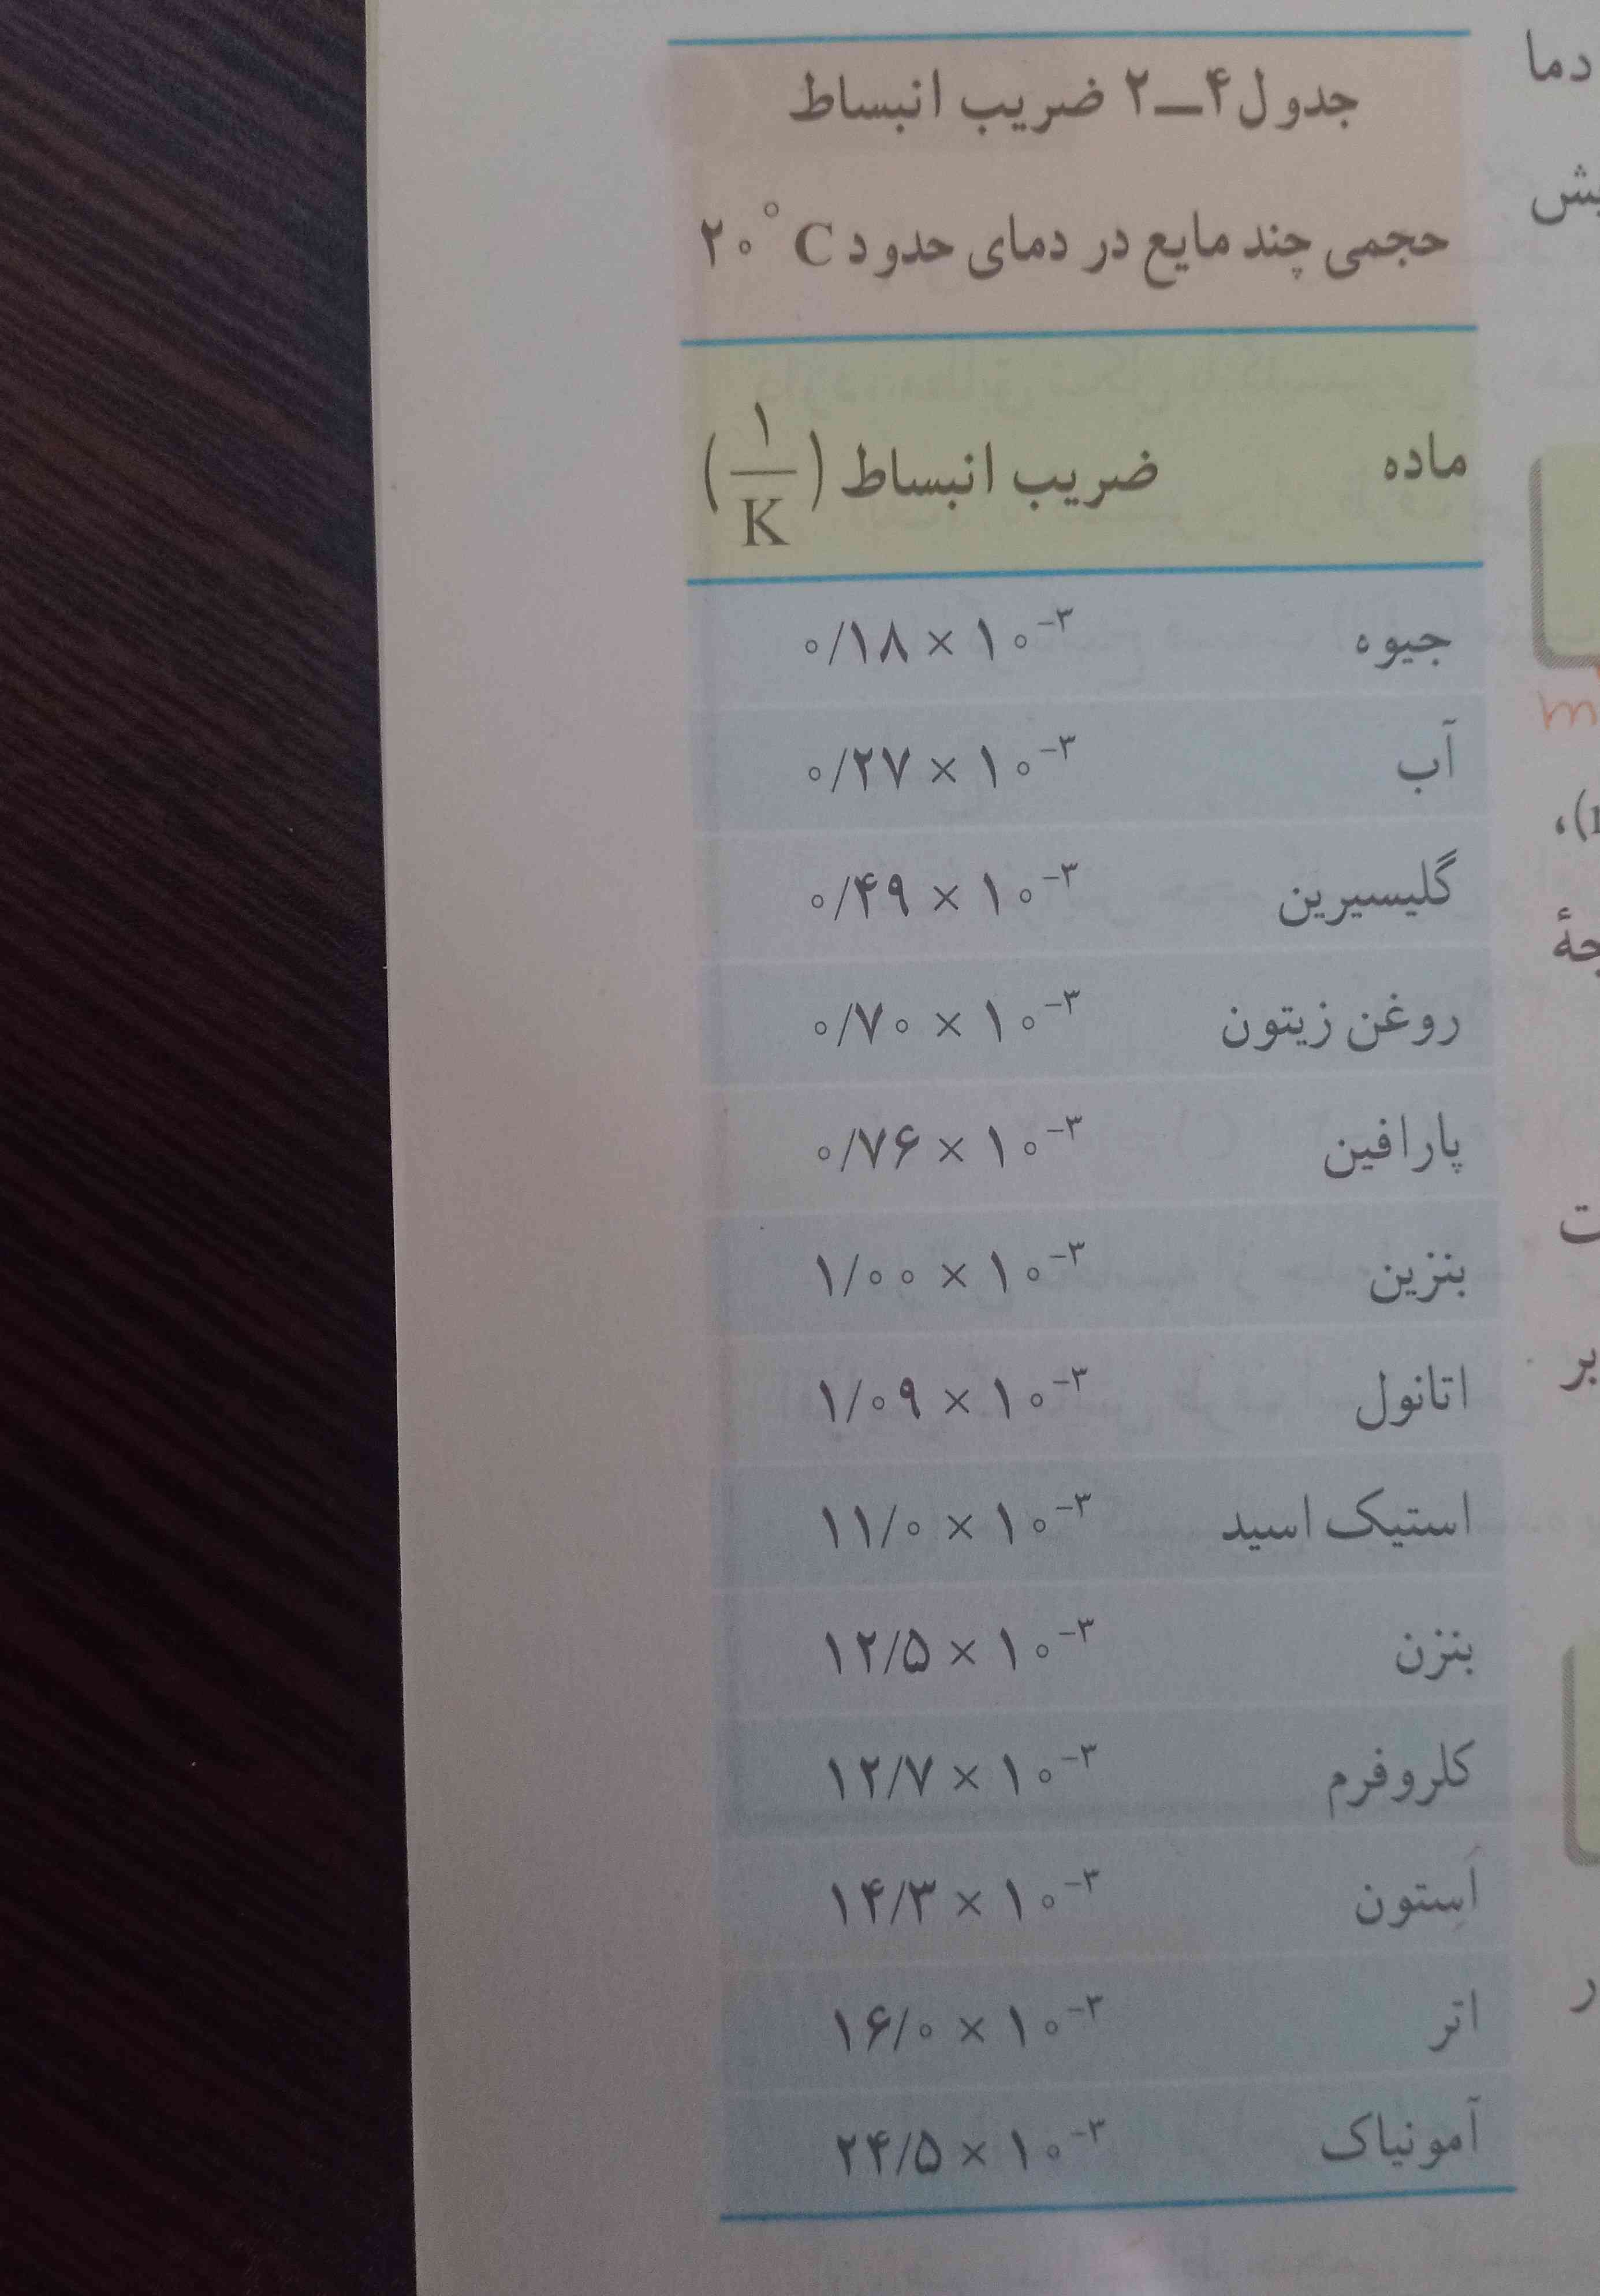 جدول ۴ــ۲ ضریب انبساط
حجمی چند مایع در دمای حدود ۲۰°C
ماده ضریب انبساط (۱/K)
جیوه ۰/۱۸ × ۱۰⁻³
آب ۰/۲۷ × ۱۰⁻³
گلیسیرین ۰/۴۹ × ۱۰⁻³
روغن زیتون ۰/۷۰ × ۱۰⁻³
پارافین ۰/۷۶ × ۱۰⁻³
بنزین ۱/۰۰ × ۱۰⁻³
اتانول ۱/۰۹ × ۱۰⁻³
استیک اسید ۱۱/۰ × ۱۰⁻³
بنزن ۱۲/۵ × ۱۰⁻³
کلروفرم ۱۲/۷ × ۱۰⁻³
اَستون ۱۴/۳ × ۱۰⁻³
اتر ۱۶/۰ × ۱۰⁻³
آمونیاک ۲۴/۵ × ۱۰⁻³
دما
بر